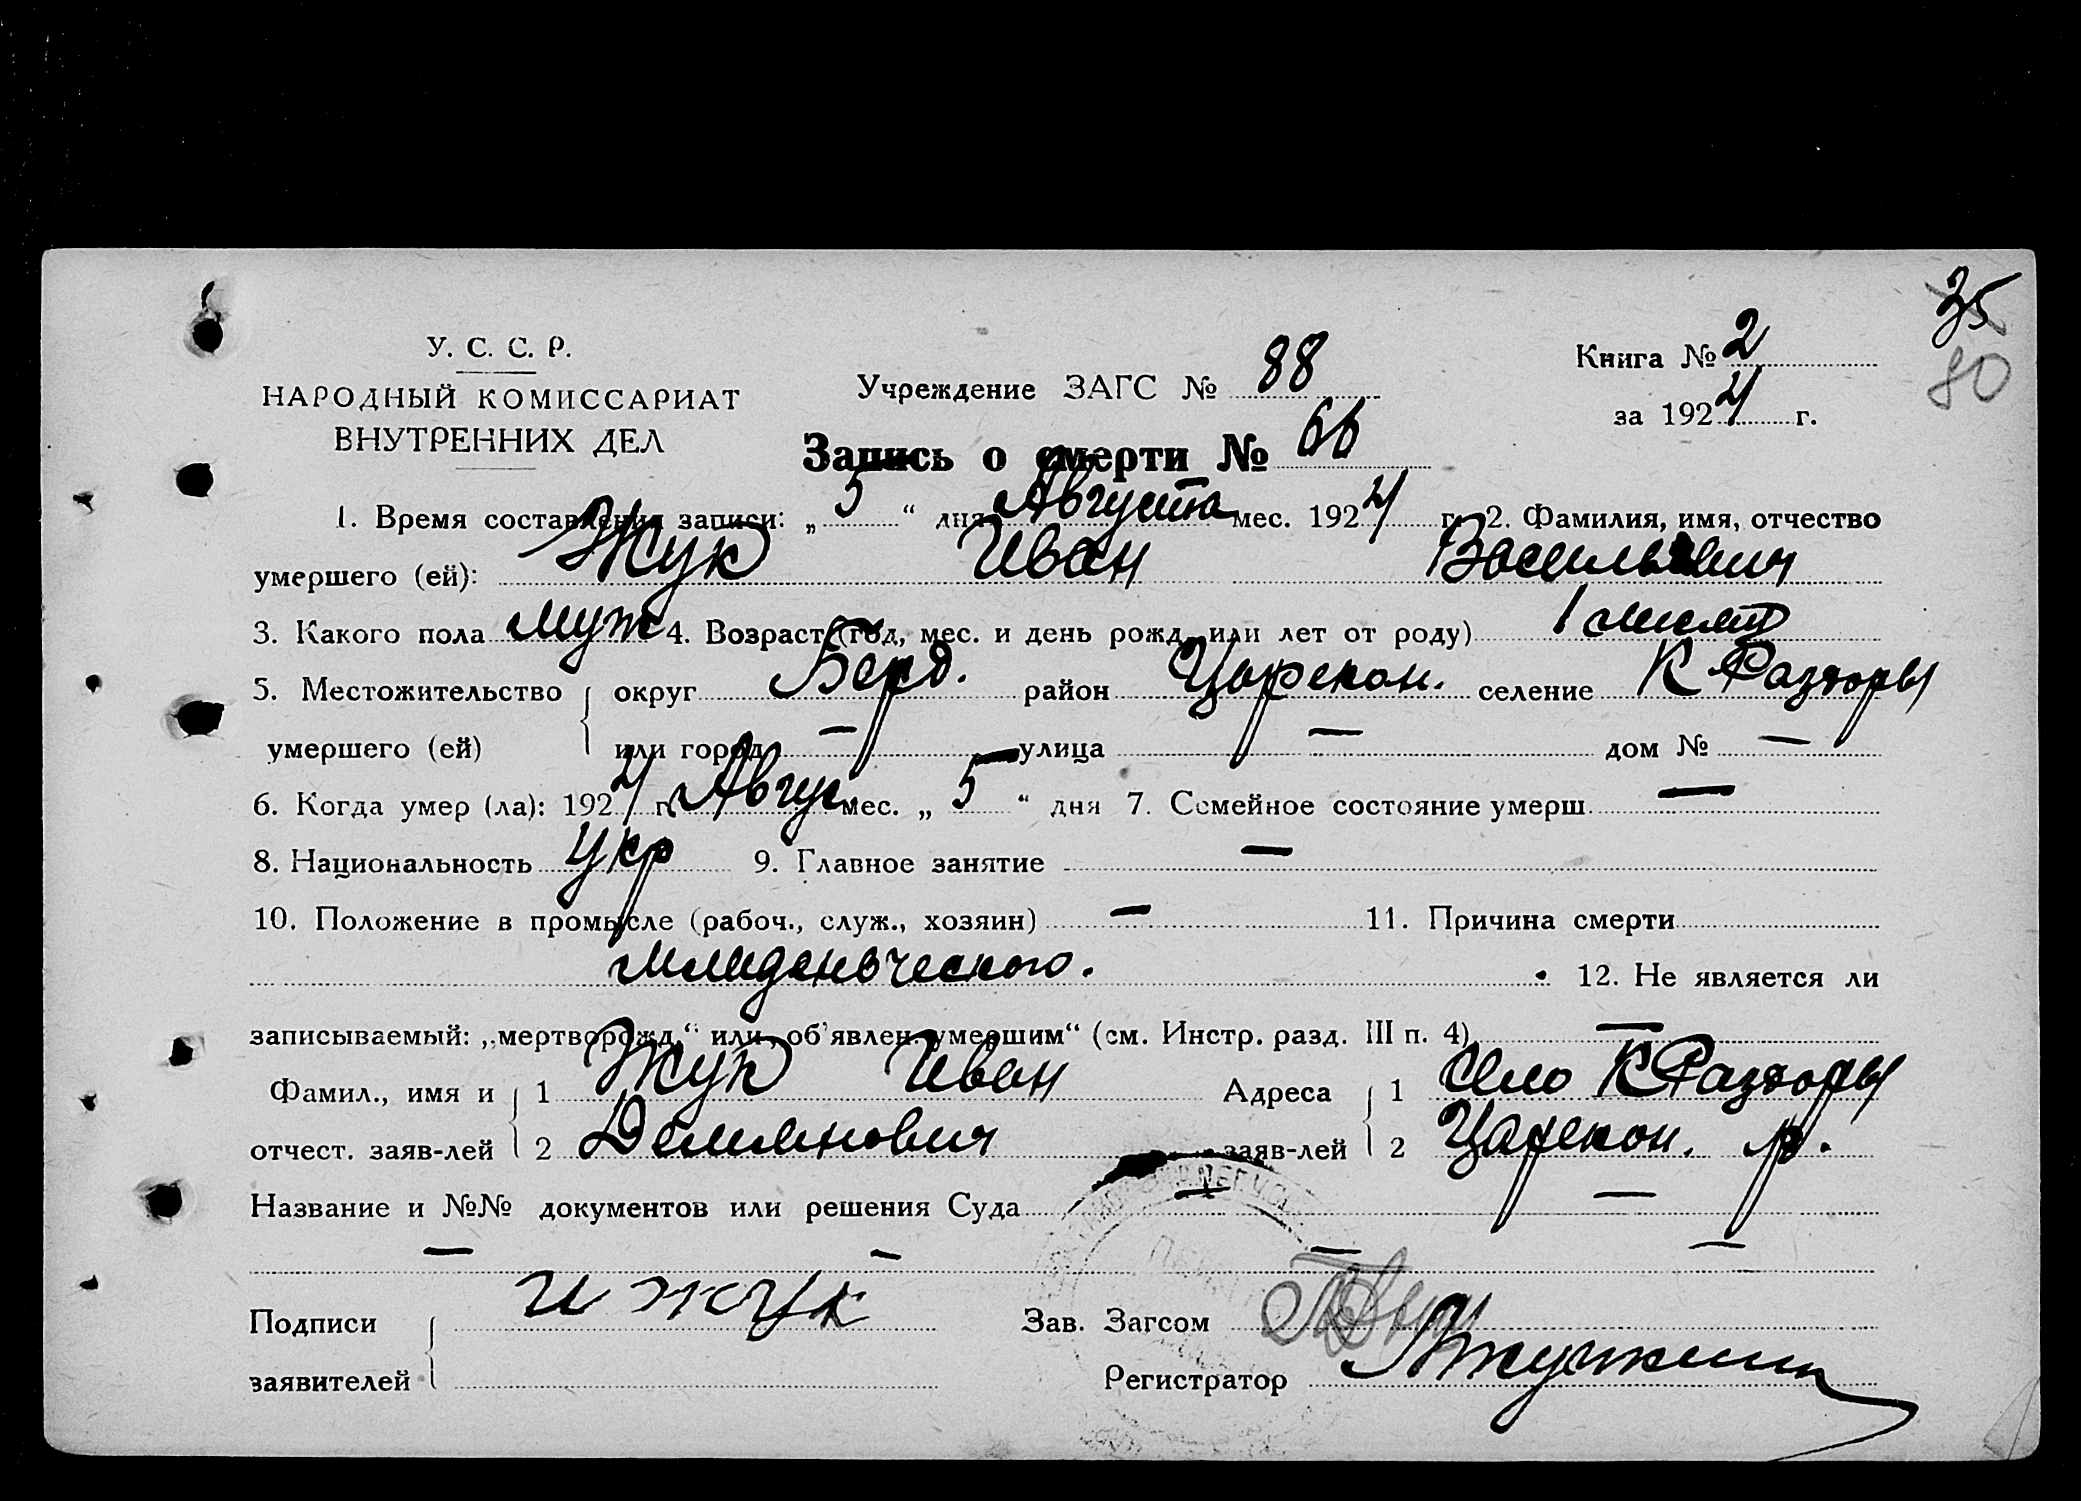 35
80
У. С. С. Р.
НАРОДНЫЙ КОМИССАРИАТ
ВНУТРЕННИХ ДЕЛ
Учреждение ЗАГС № 88
Книга № 2
за 1924 г.
Запись о смерти № 66
1. Время составления записи: „ 5 “ дня Августа мес. 1924 г. 2. Фамилия, имя, отчество
умершего (ей): Жук Иван Васильевич
3. Какого пола муж 4. Возраст (год, мес. и день рожд. или лет от роду) 1 месяц
5. Местожительство округ Берд. район Царекон. селение К Раздоры
умершего (ей) или город — улица — дом № —
6. Когда умер (ла): 1924 г. Август мес. „ 5 “ дня 7. Семейное состояние умерш. —
8. Национальность Укр 9. Главное занятие —
10. Положение в промысле (рабоч., служ., хозяин) — 11. Причина смерти
младенческого. 12. Не является ли
записываемый: „мертворожд.“ или „об'явлен. умершим“ (см. Инстр. разд. III п. 4) —
Фамил., имя и 1 Жук Иван Адреса 1 Село К Раздоры
отчест. заяв-лей 2 Демянович заяв-лей 2 Царекон. р.
Название и №№ документов или решения Суда — —
— — — —
Подписи И Жук Зав. Загсом
заявителей Регистратор